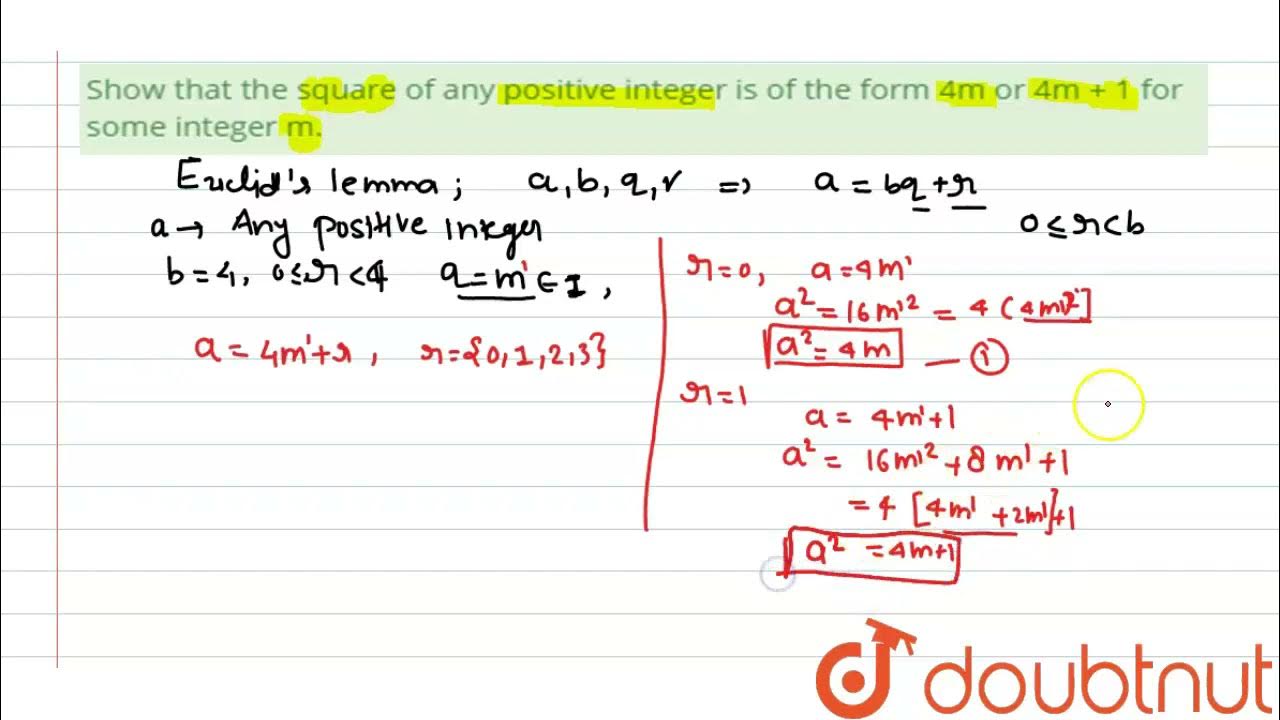 Show that the square of any positive integer is of the form 4m or 4m + 1 for
some integer m.
Euclid's lemma ; a, b, q, r => a = bq + r
a → Any positive integer 0 ≤ r < b
b = 4, 0 ≤ r < 4 q = m' ∈ I ,
r = 0, a = 4m'
a² = 16m'² = 4 (4m'²]
a = 4m' + r , r = {0, 1, 2, 3}
a² = 4m — ①
r = 1
a = 4m' + 1
a² = 16m'² + 8m' + 1
= 4 [4m' + 2m'] + 1
a² = 4m + 1
doubtnut